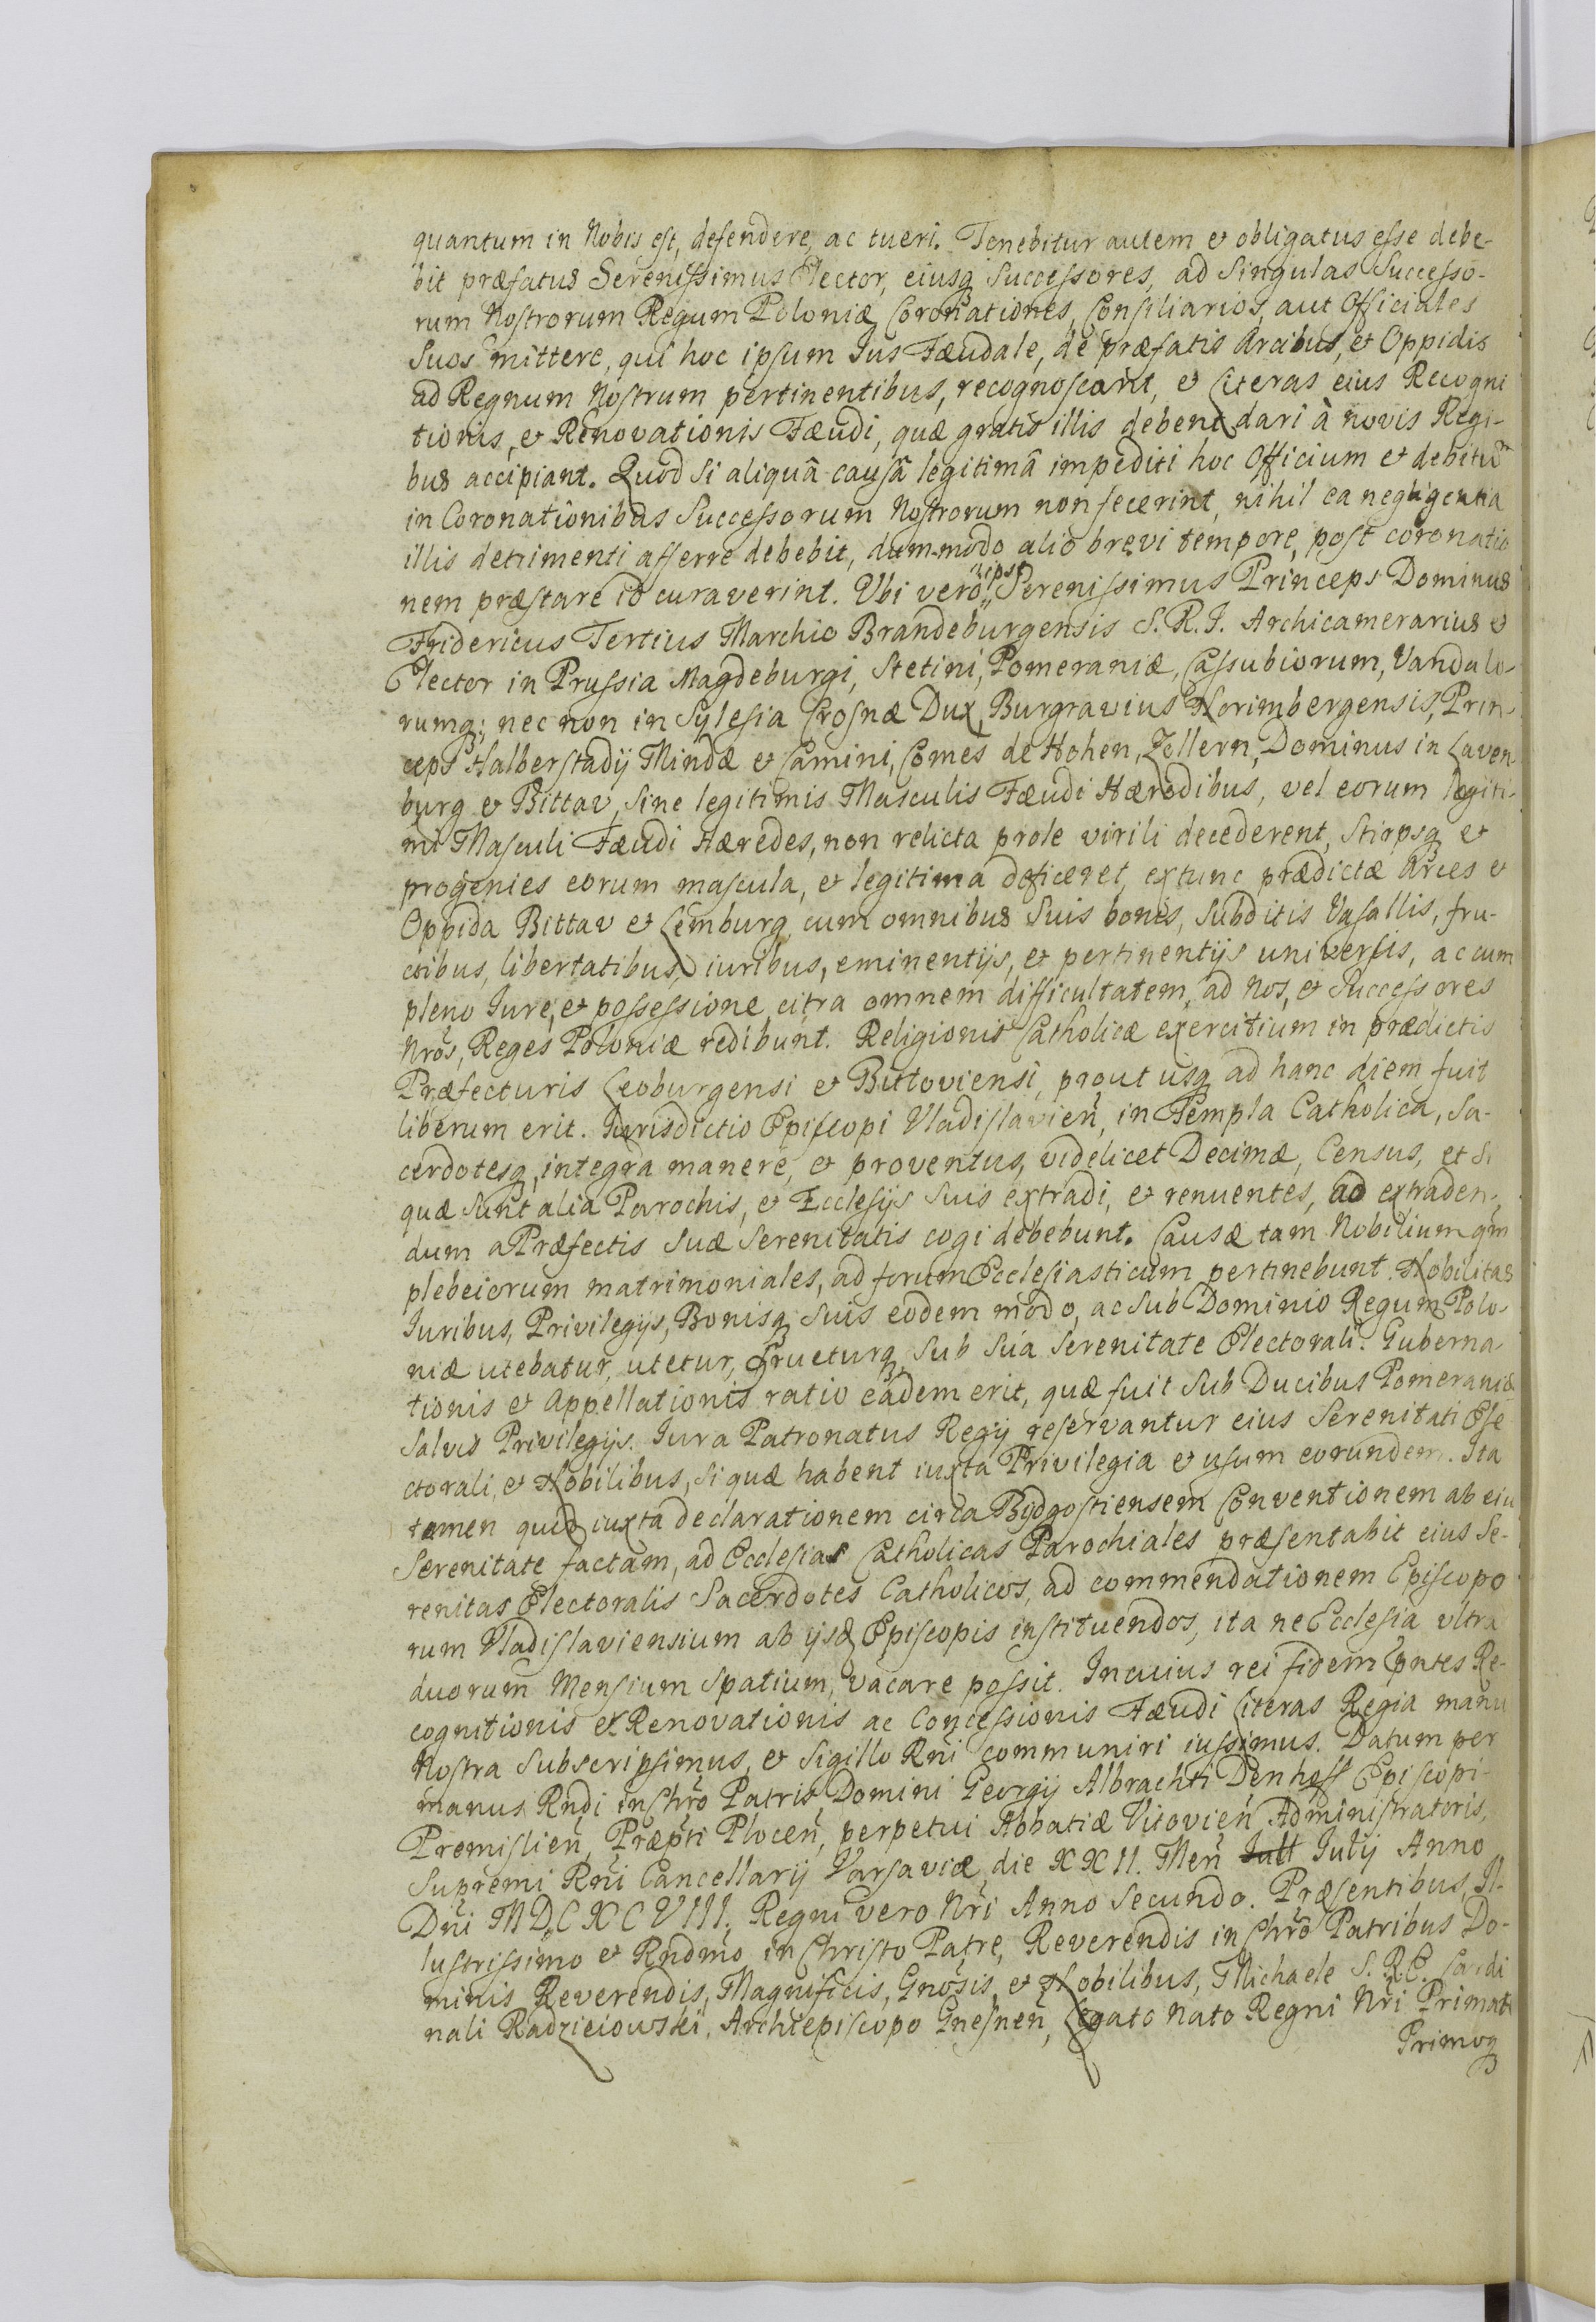 quantum in Nobis est, defendere, ac tueri. Tenebitur autem et obligatus esse debe-
bit præfatus Serenissimus Elector, eiusq; Successores, ad Singulas Successo-
rum Nostrorum Regum Poloniæ Coronationes, Consiliarios, aut Officiales
Suos mittere, qui hoc ipsum Ius Fæudale, de præfatis Arcibus, et Oppidis
ad Regnum Nostrum pertinentibus, recognoscant, et Literas eius Recogni
tionis, et Renovationis Fæudi, quæ gratis illis debent dari à novis Regi-
bus accipiant. Quod Si aliquâ causâ legitimâ impediti hoc Officium et debitũ
in Coronationibus Successorum Nostrorum non fecerint, nihil ea negligentia
illis detrimenti afferre debebit, dum-modo alio brevi tempore, post coronatio
nem præstare id curaverint. Ubi vero ipse Serenissimus Princeps Dominus
Fridericus Tertius Marchio Brandeburgensis S. R. I. Archicamerarius et
Elector in Prussia Magdeburgi, Stetini, Pomeraniæ, Cassubiorum, Vandalo-
rumq; nec non in Sylesia Crosnæ Dux, Burgravius Norimbergensis, Prin-
ceps Halberstadij Mindæ et Camini, Comes de Hohen, Zollern, Dominus in Laven
burg et Bittav, Sine legitimis Masculis Fæudi Hæredibus, vel eorum legiti-
mi Masculi Fæudi Hæredes, non relicta prole virili decederent, Stirpsq; et
progenies eorum mascula, et legitima deficeret, extunc prædictæ Arces et
Oppida Bittav et Lemburg cum omnibus Suis bonis, Subditis Vasallis, fru-
ctibus, libertatibus, iuribus, eminentijs, et pertinentijs universis, ac cum
pleno Iure, et possessione citra omnem difficultatem, ad Nos, et Successores
Nrõs, Reges Poloniæ redibunt. Religionis Catholicæ exercitium in prædictis
Præfecturis Leoburgensi et Bittoviensi, prout usq; ad hanc diem fuit
liberum erit. Iurisdictio Episcopi Vladislavien̄, in Templa Catholica, Sa-
cerdotesq; integra manere, et proventus, videlicet Decimæ, Census, et Si
quæ Sunt alia Parochis, et Ecclesijs Suis extradi, et renuentes, ad extraden-
dum a Præfectis Suæ Serenitatis cogi debebunt. Causæ tam Nobilium qm̄
plebeiorum matrimoniales, ad forum Ecclesiasticum pertinebunt. Nobilitas
Iuribus, Privilegijs, Bonisq; Suis eodem modo, ac Sub Dominio Regum Polo-
niæ utebatur, utetur, frueturq; Sub Sua Serenitate Electorali. Guberna-
tionis et Appellationis ratio eadem erit, quæ fuit Sub Ducibus Pomeraniæ
Salvis Privilegijs. Iura Patronatus Regij reservantur eius Serenitati Ele
ctorali, et Nobilibus, Si quæ habent iuxta Privilegia et usum eorundem. Ita
tamen quod iuxta declarationem circa Bydgostiensem Conventionem ab eiu
Serenitate factam, ad Ecclesias Catholicas Parochiales præsentabit eius Se-
renitas Electoralis Sacerdotes Catholicos, ad commendationem Episcopo
rum Vladislaviensium ab ijsd Episcopis instituendos, ita ne Ecclesia ultra
duorum Mensium Spatium, vacare possit. In cuius rei fidem p̄ntes Re-
cognitionis et Renovationis ac Concessionis Fæudi Literas Regia manu
Nostra Subscripsimus, et Sigillo Rn̄i communiri iussimus. Datum per
manus Rndi in Chr̄o Patris Domini Georgij Albrachti Denhoff Episcopi-
Premislien̄, Præpti Plocen̄, perpetui Abbatiæ Vitovien̄ Administratoris,
Supremi Rn̄i Cancellarij Varsaviæ, die XXII. Men̄ Iull Iulij Anno
Dn̄i MDCXCVIII. Regni vero Nr̄i Anno Secundo. Præsentibus, Il-
lustrissimo et Rndm̄o in Christo Patre, Reverendis in Chr̄o Patribus Do-
minis Reverendis, Magnificis, Gn̄osis, et Nobilibus, Michaele S. R. E. Cardi
nali Radzieiowski, Archiepiscopo Gnesnen̄, Legato Nato Regni Nr̄i Primate
Primoq;